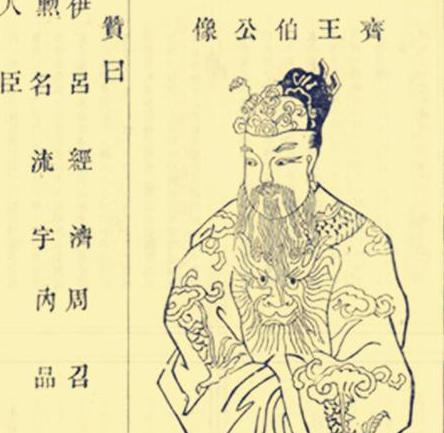 齊王伯公像
贊曰
伊呂經濟周召
勲名流宇內品
人臣